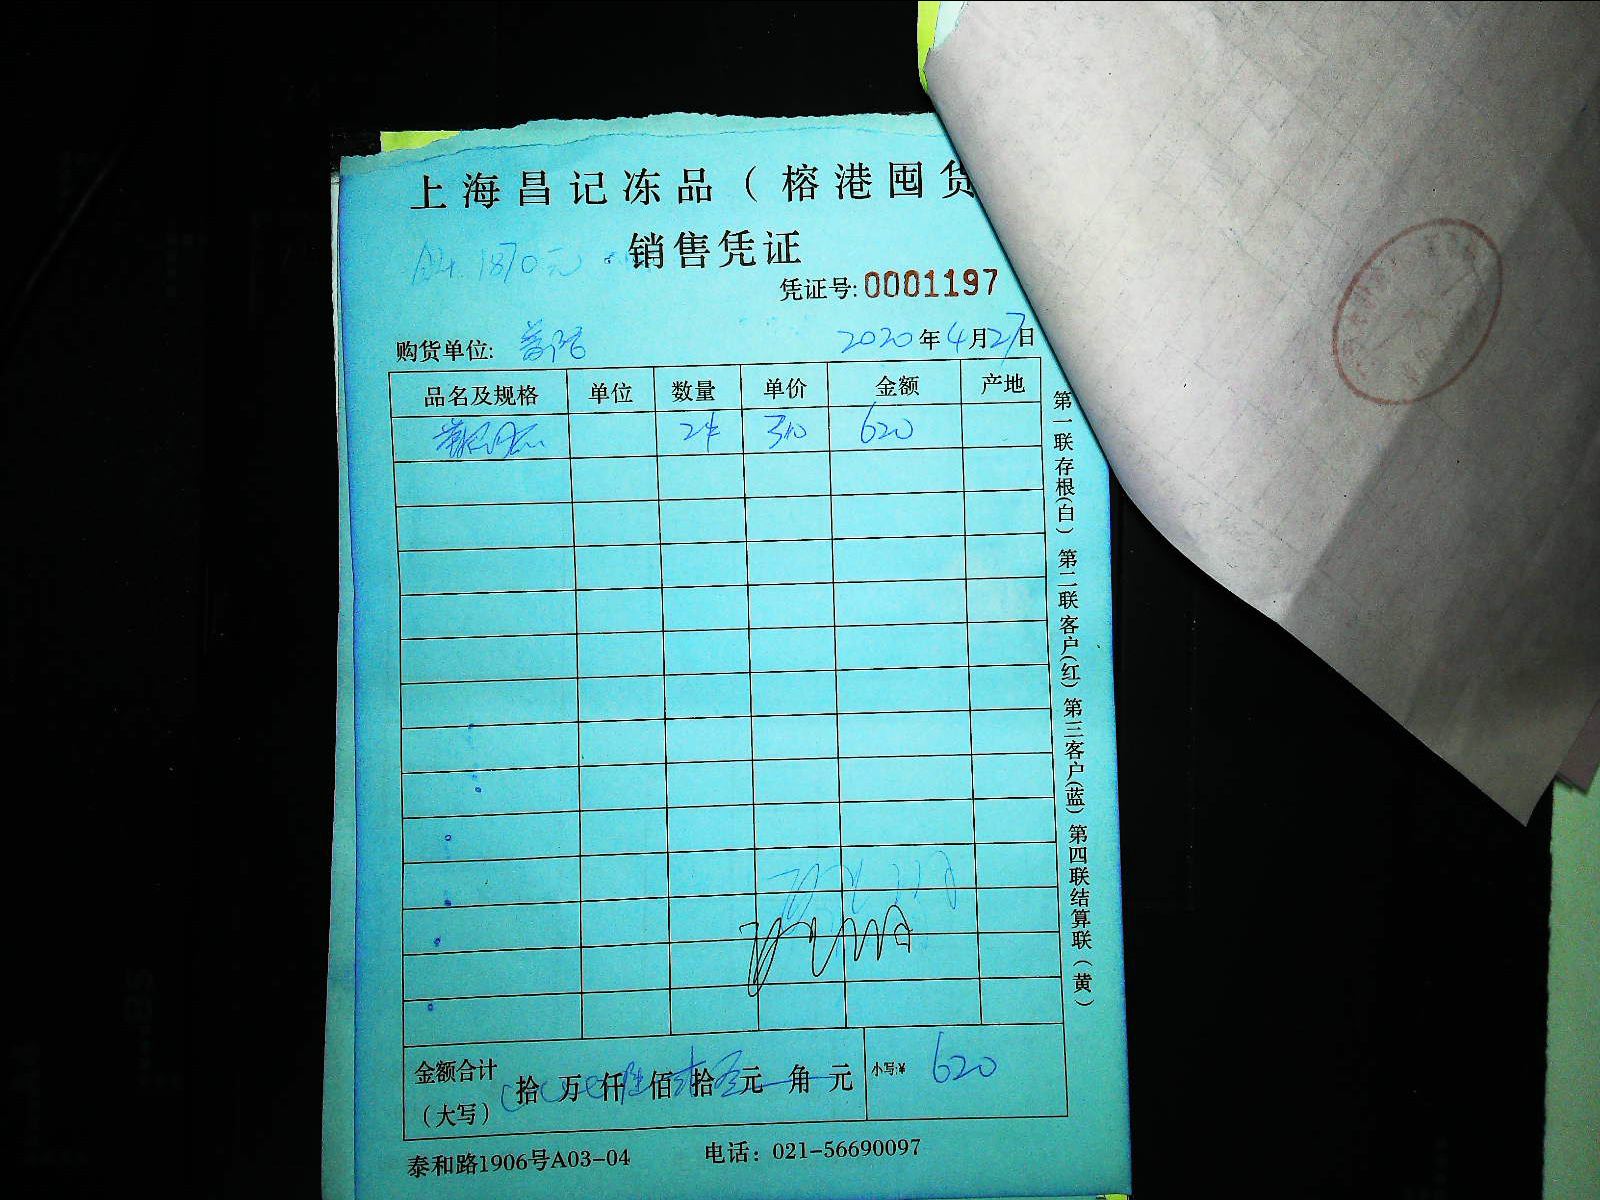 上海昌记冻品（榕港囤货
1870元
销售凭证
凭证号:0001197
购货单位: 2020年4月27日
品名及规格 单位 数量 单价 金额 产地
2件 310 620
金额合计（大写） 拾 万 仟 佰 拾 元 角 元 小写:¥ 620
泰和路1906号A03-04 电话：021-56690097
第一联存根（白） 第二联客户（红） 第三客户（蓝） 第四联结算联（黄）